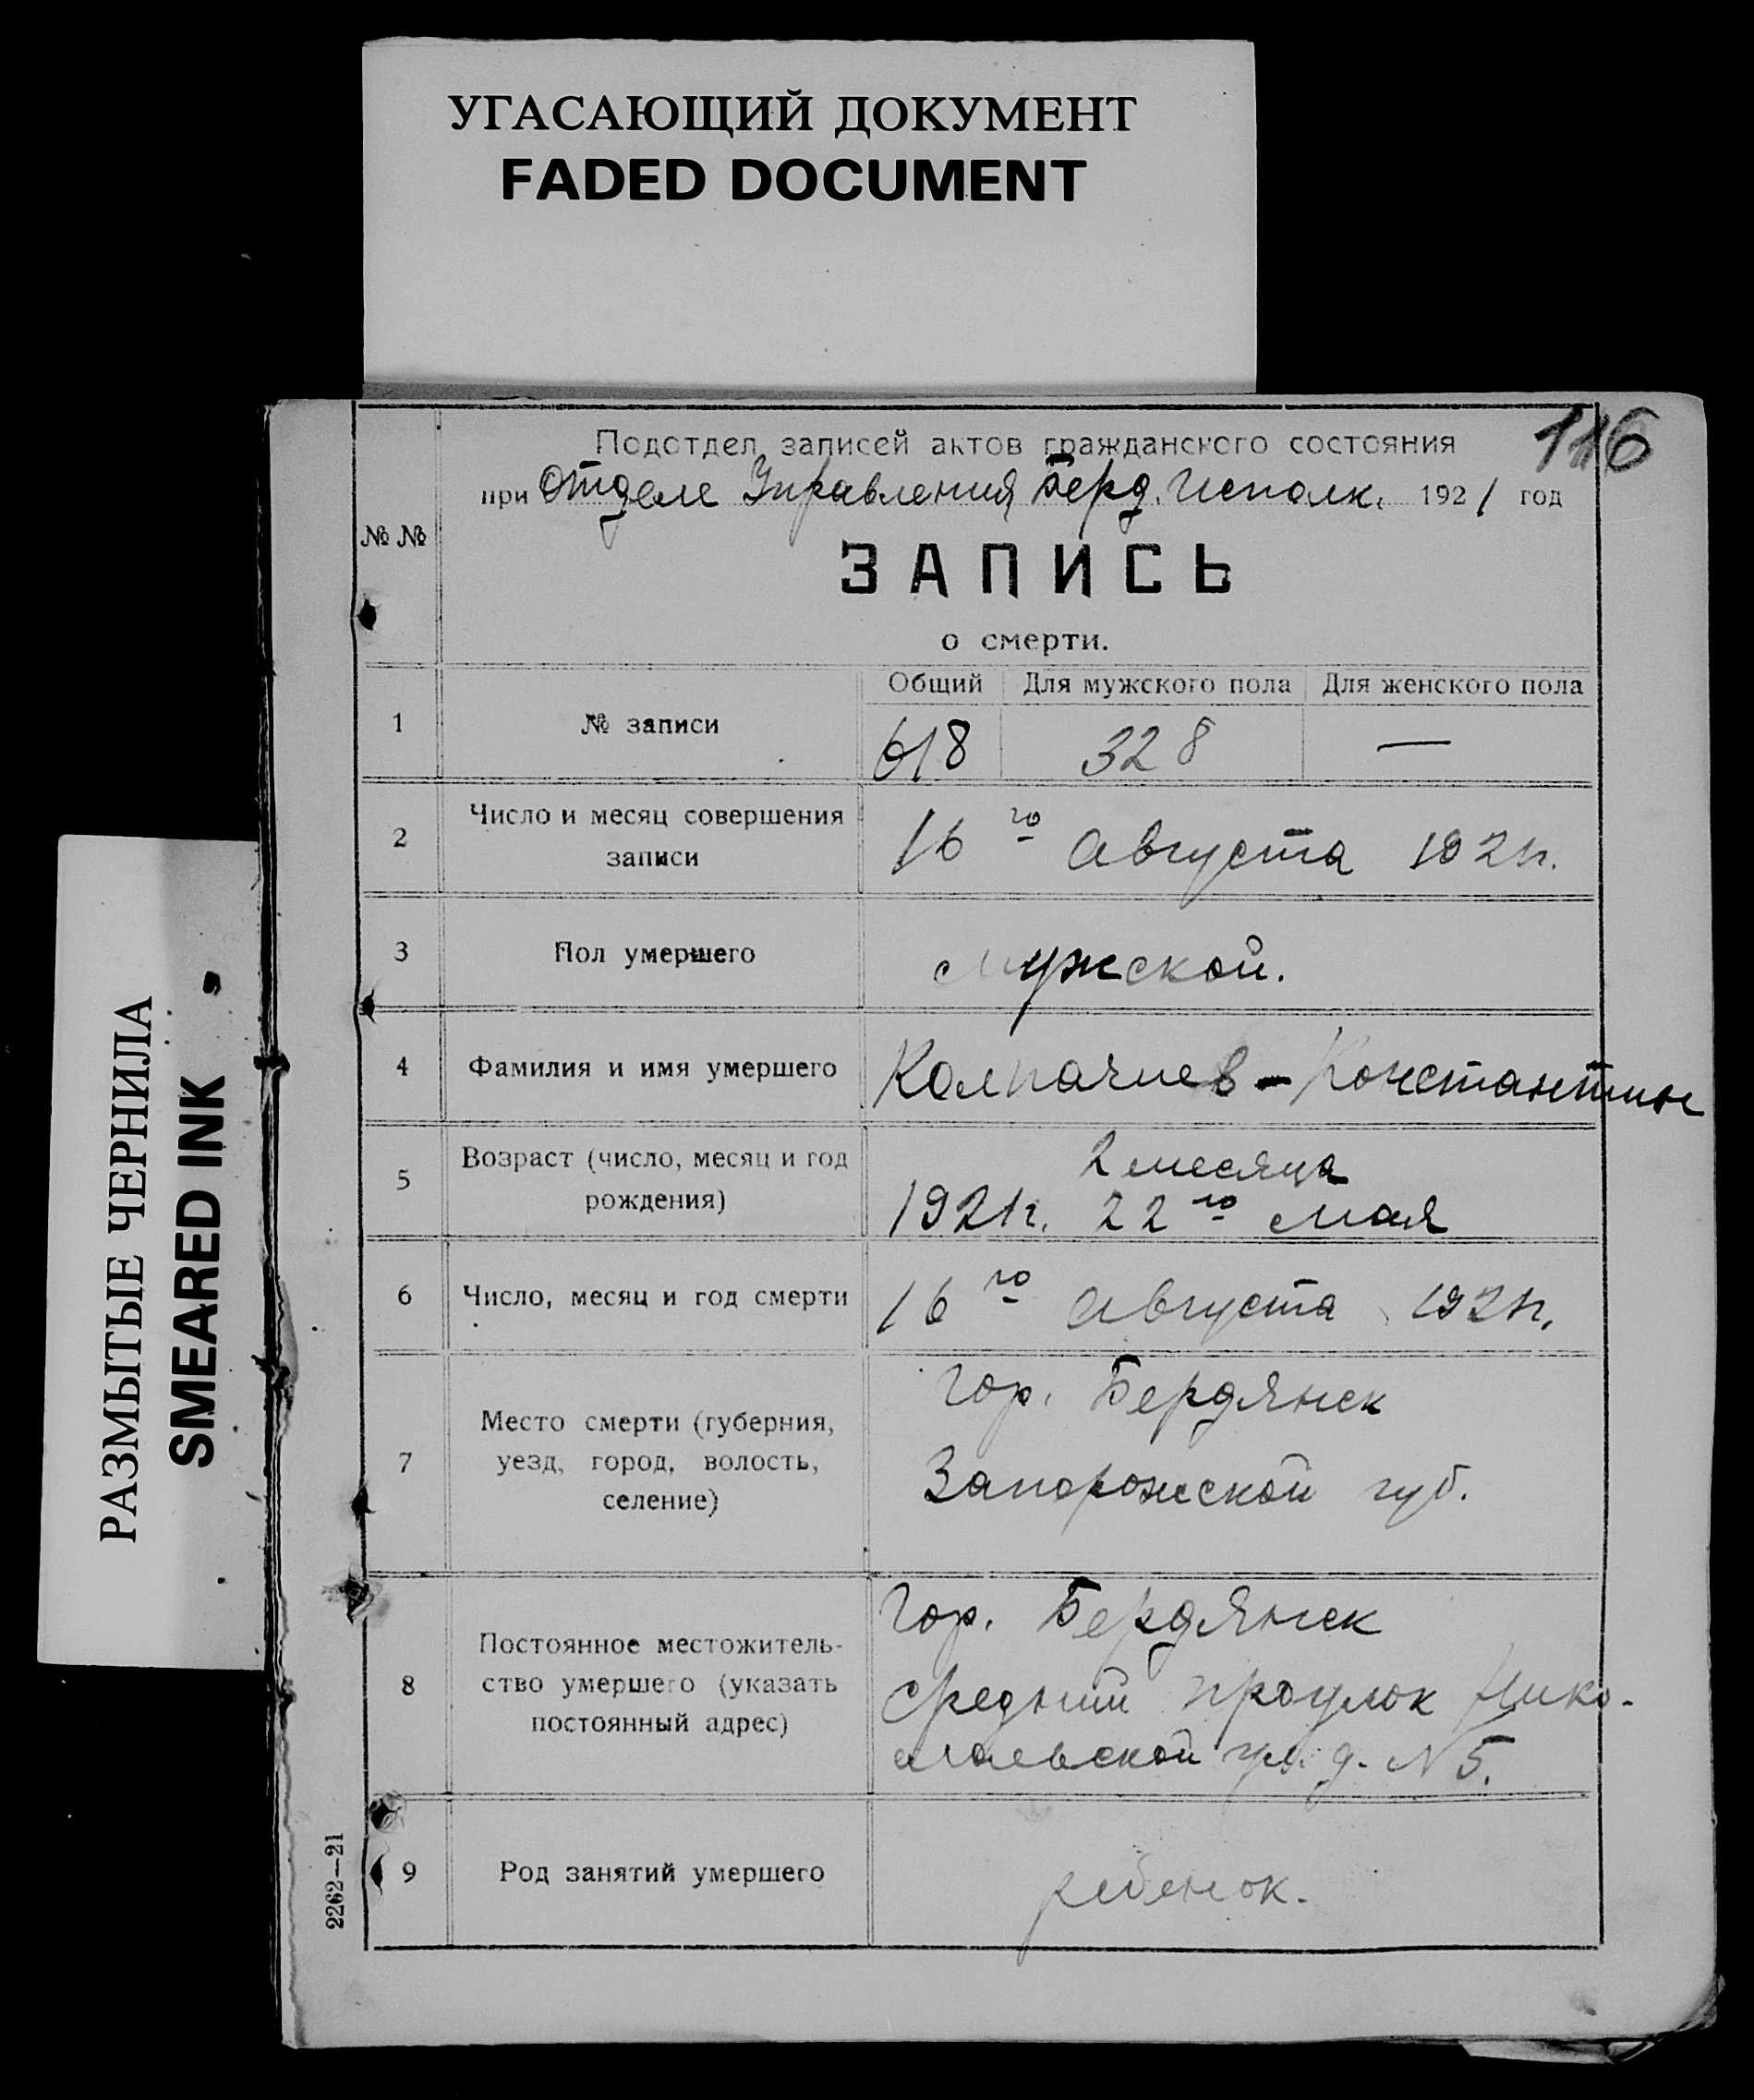 УГАСАЮЩИЙ ДОКУМЕНТ
FADED DOCUMENT
РАЗМЫТЫЕ ЧЕРНИЛА
SMEARED INK
116
Подотдел записей актов гражданского состояния
при Отделе Управления Берд. Исполк. 1921 год
№ №
ЗАПИСЬ
о смерти.
Общий Для мужского пола Для женского пола
1 № записи 618 328 —
2 Число и месяц совершения
записи
16 го Августа 1921г.
3 Пол умершего мужской.
4 Фамилия и имя умершего Колпачиев - Константин
5 Возраст (число, месяц и год
рождения)
2 месяца
1921г. 22 го мая
6 Число, месяц и год смерти 16 го Августа 1921г.
7 Место смерти (губерния,
уезд, город, волость,
селение)
Гор. Бердянск
Запорожской губ.
8 Постоянное местожитель-
ство умершего (указать
постоянный адрес)
Гор. Бердянск
Средний проулок Нико-
лаевской ул. д. N 5.
9 Род занятий умершего ребенок.
2262—21